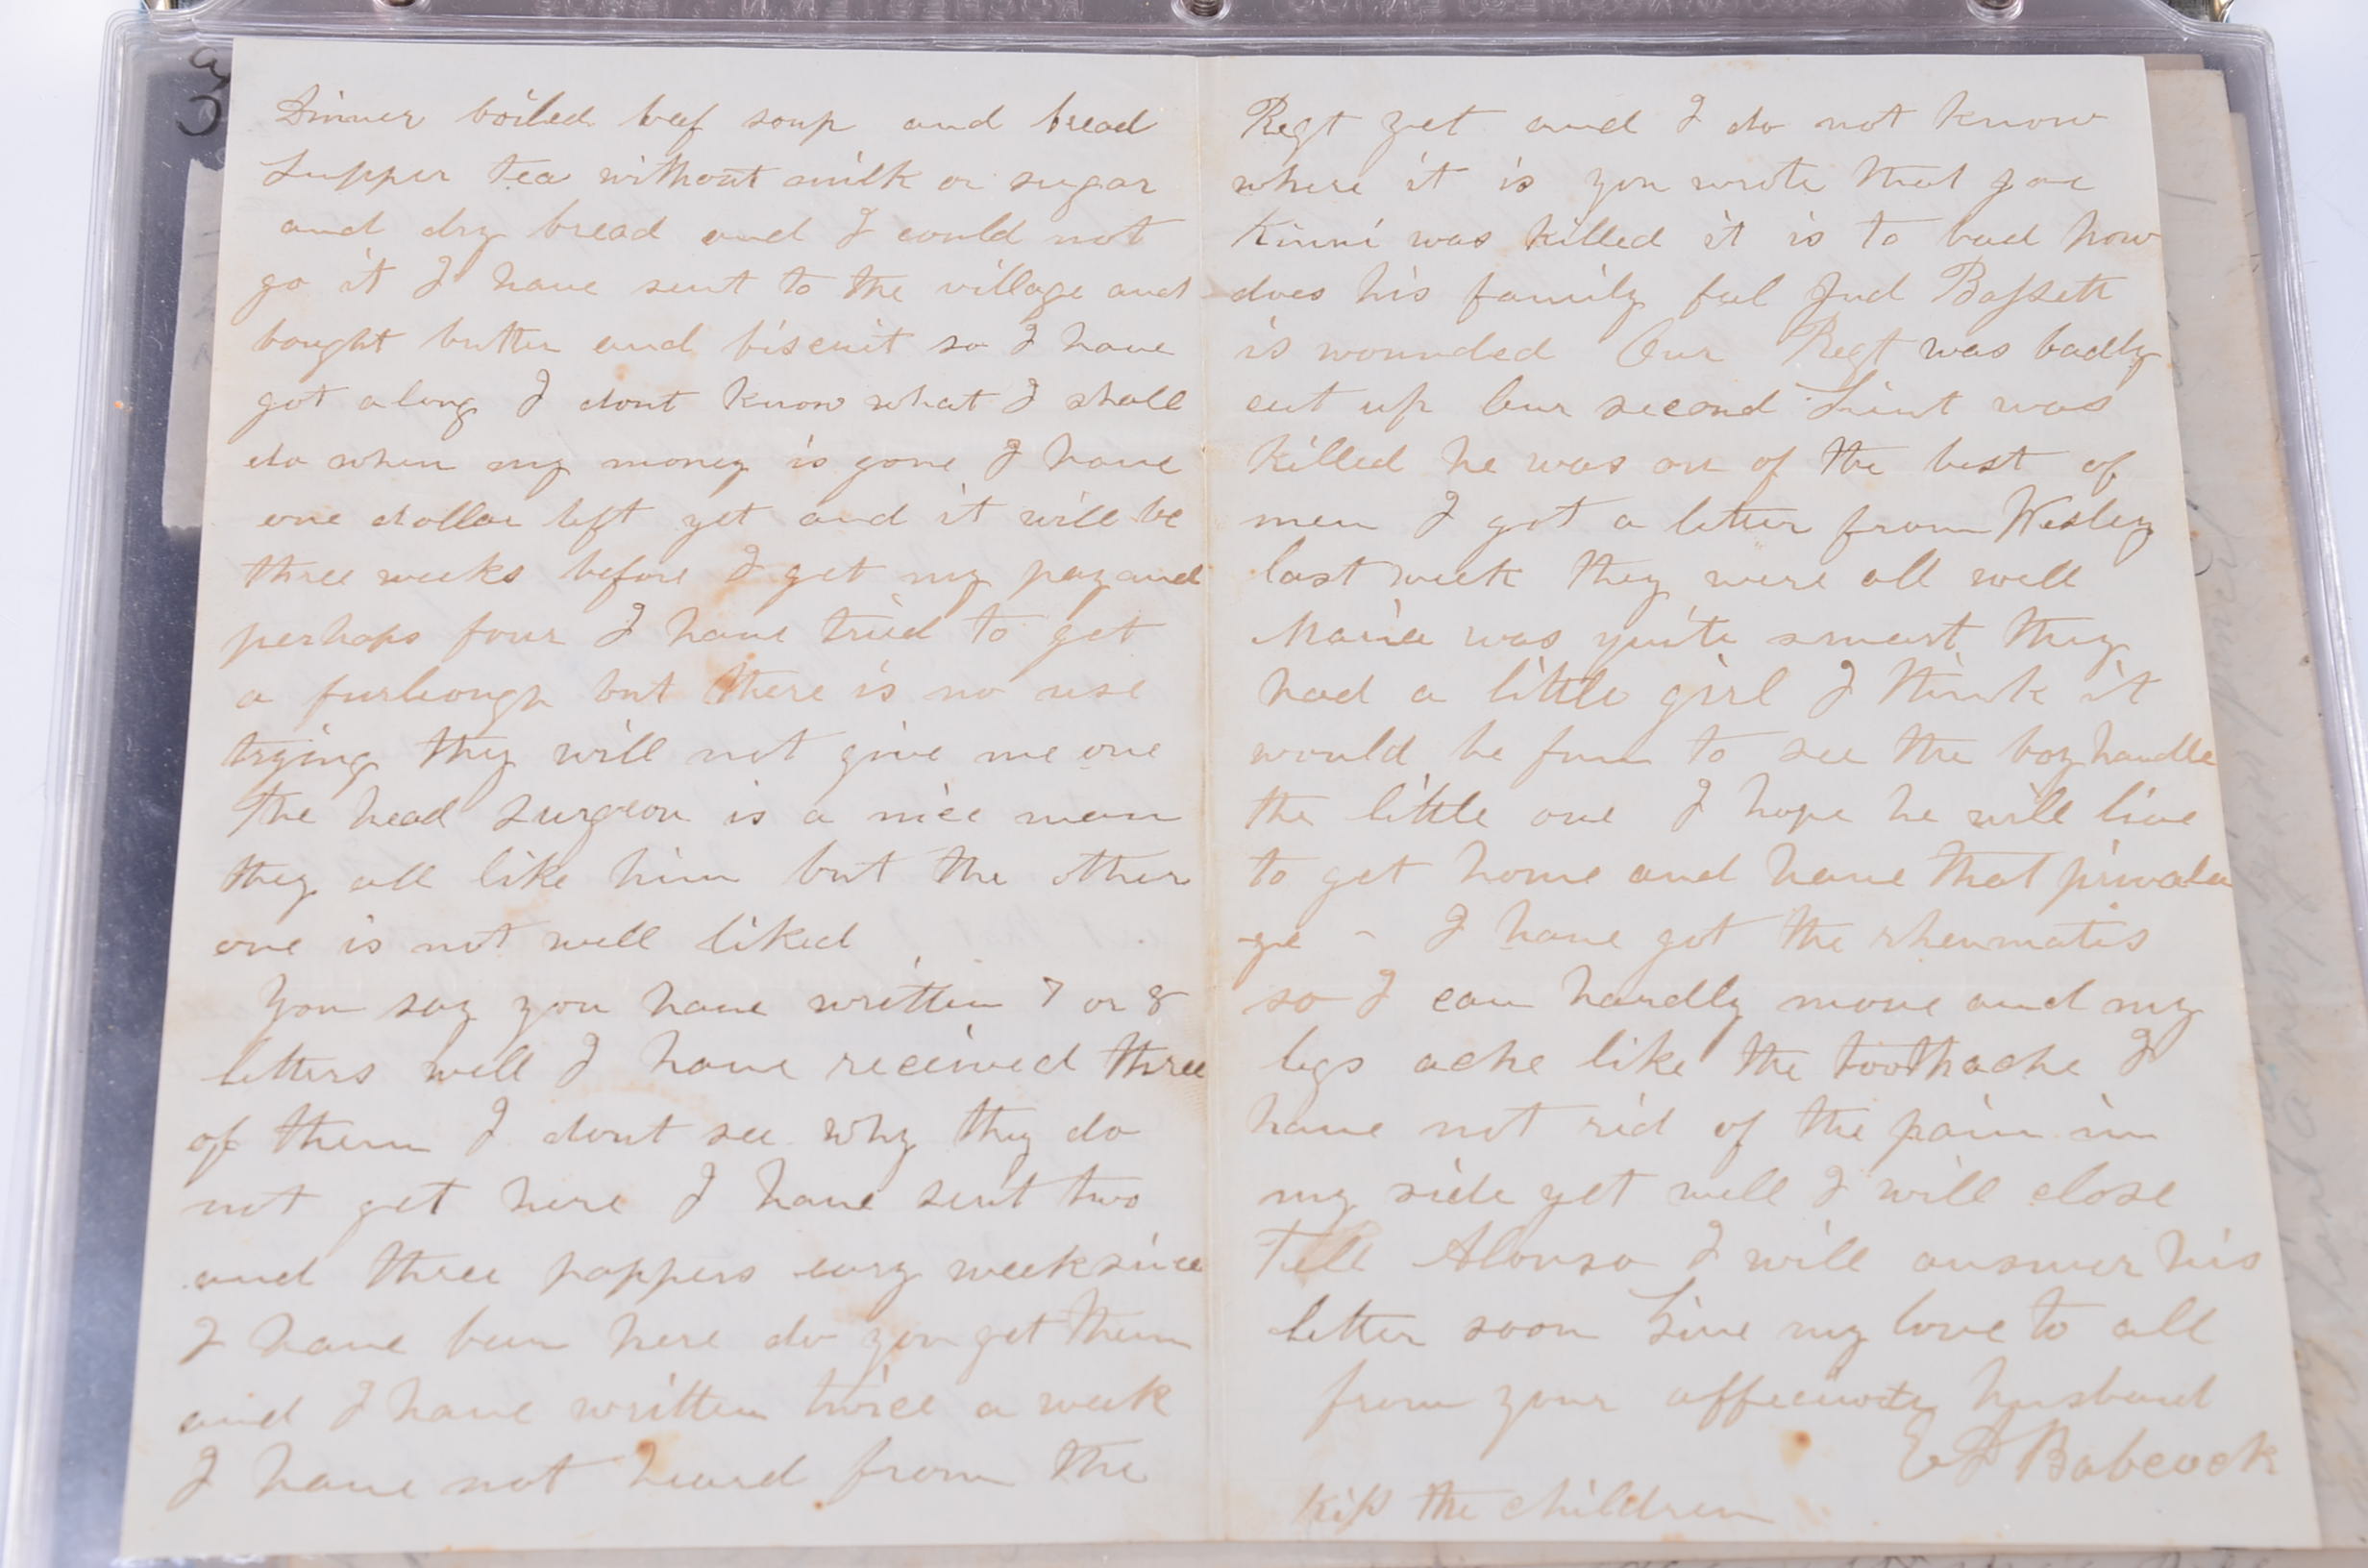 Dinner boiled beef soup and bread
Supper tea without milk or sugar
and dry bread and I could not
go it I have sent to the village and
bought butter and biscuit so I have
got along I dont know what I shall
do when my money is gone I have
one dollar left yet and it will be
three weeks before I get my pay and
perhaps four I have tried to get
a furlough but there is no use
trying they will not give me one
The head surgeon is a nice man
they all like him but the other
one is not well liked
You say you have written 7 or 8
letters well I have received three
of them I dont see why they do
not get here I have sent two
and three pappers evry week since
I have been here do you get them
and I have written twice a week
I have not heard from the
Regt yet and I do not know
where it is you wrote that Joe
Kinni was killed it is to bad how
does his family feel Jud Bassett
is wounded Our Regt was badly
cut up Our second Lieut was
killed he was on of the best of
men I got a letter from Wesley
last week they were all well
Maria was quite smart they
had a little girl I think it
would be fun to see the boy handle
the little one I hope he will live
to get home and have that privala
-ge - I have got the rheumatis
so I can hardly move and my
legs ache like the toothache I
have not rid of the pain in
my side yet well I will close
Tell Alonso I will answer his
letter soon Give my love to all
from your husband
E D Babcock
Kiss the children